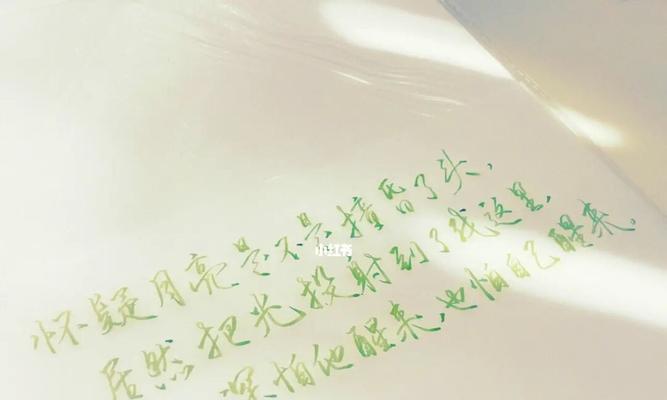 怀疑月亮是不是撞昏了头，
居然把光投射到了我这里，
深怕他醒来，也怕自己醒来。
小红书